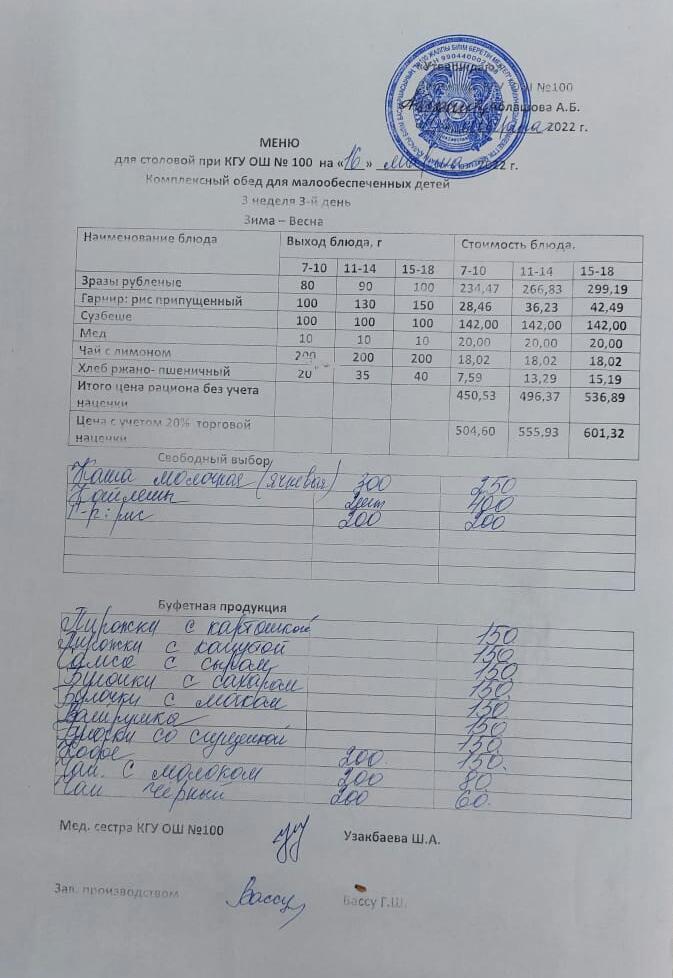 Утверждаю
№100
А.Б.
2022 г.
МЕНЮ
для столовой при КГУ ОШ № 100 на «16» марта 2022 г.
Комплексный обед для малообеспеченных детей
3 неделя 3-й день
Зима – Весна
Наименование блюда Выход блюда, г Стоимость блюда.
7-10 11-14 15-18 7-10 11-14 15-18
Зразы рубленые 80 90 100 234,47 266,83 299,19
Гарнир: рис припущенный 100 130 150 28,46 36,23 42,49
Сузбеше 100 100 100 142,00 142,00 142,00
Мед 10 10 10 20,00 20,00 20,00
Чай с лимоном 200 200 200 18,02 18,02 18,02
Хлеб ржано- пшеничный 20 35 40 7,59 13,29 15,19
Итого цена рациона без учета наценки 450,53 496,37 536,89
Цена с учетом 20% торговой наценки 504,60 555,93 601,32
Свободный выбор
Каша молочная (ячневая) 300 250
2шт 400
Г-р: рис 200 200
Буфетная продукция
Пирожки с картошкой 150
Пирожки с капустой 150
Самса с сыром 150
Булочки с сахаром 150
Булочки с маком 150
Ватрушка 150
со сгущенкой 150
Кофе 200 150.
Чай с молоком 200 80
Чай черный 200 60.
Мед. сестра КГУ ОШ №100 Узакбаева Ш.А.
Зав. производством Вассу Вассу Г.Ш.